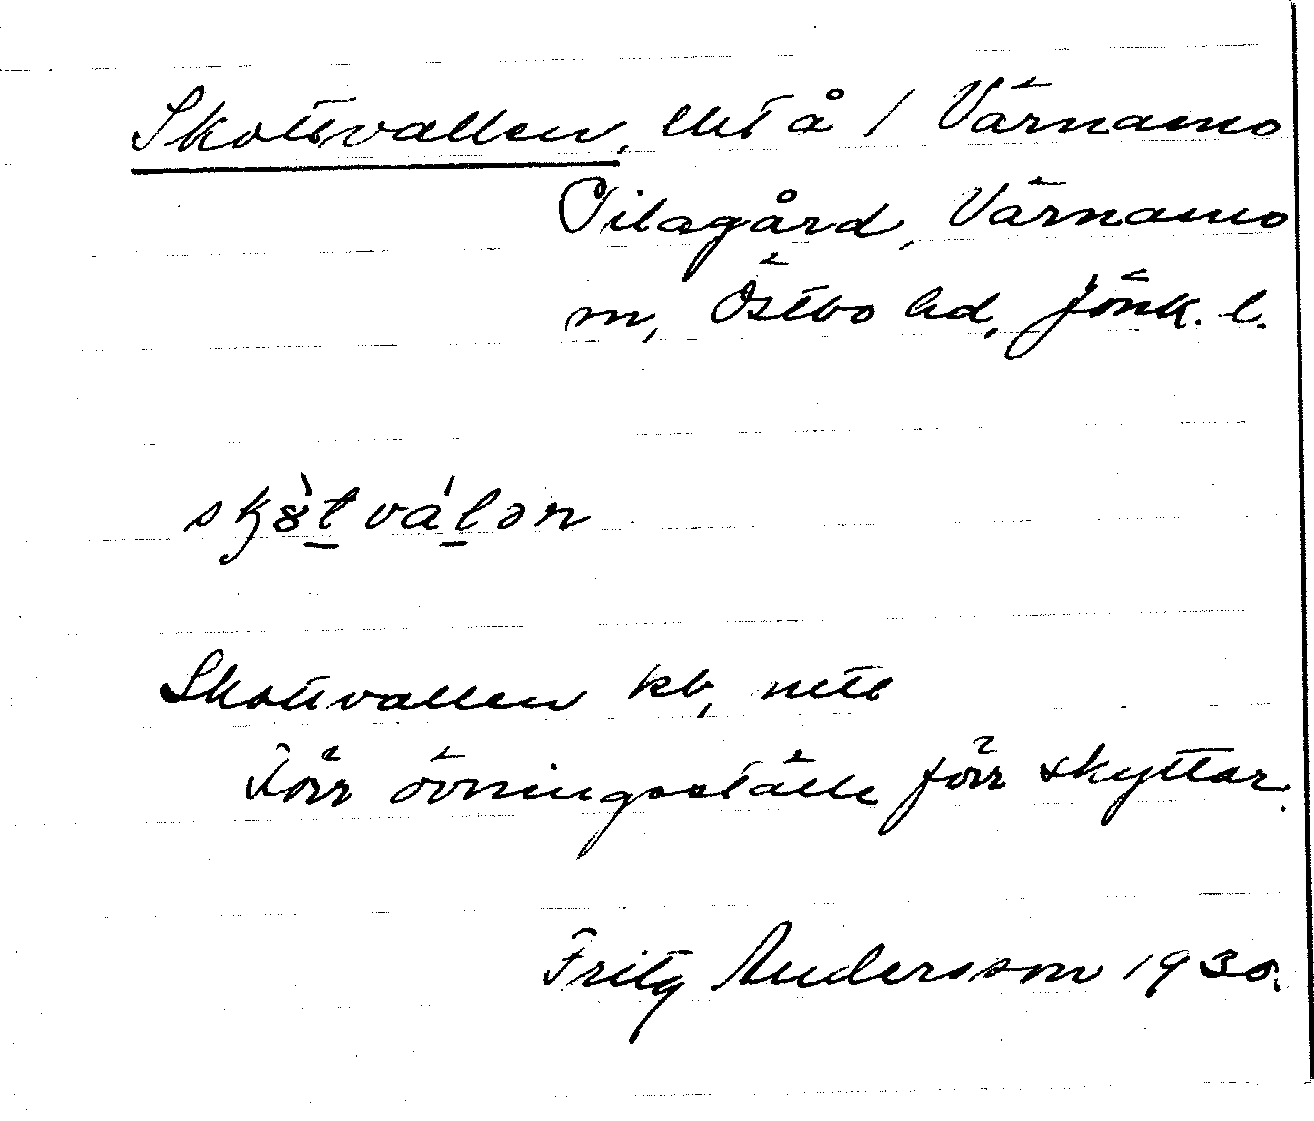 Skottvallen, äbt å 1 Värnamo
Pilagård, Värnamo
sn, Östbo hd, Jönk. l.
skòtválən
Skottvallen kb, nets
Förr övningsställe för skyttar.
Fritz Andersson 1930.